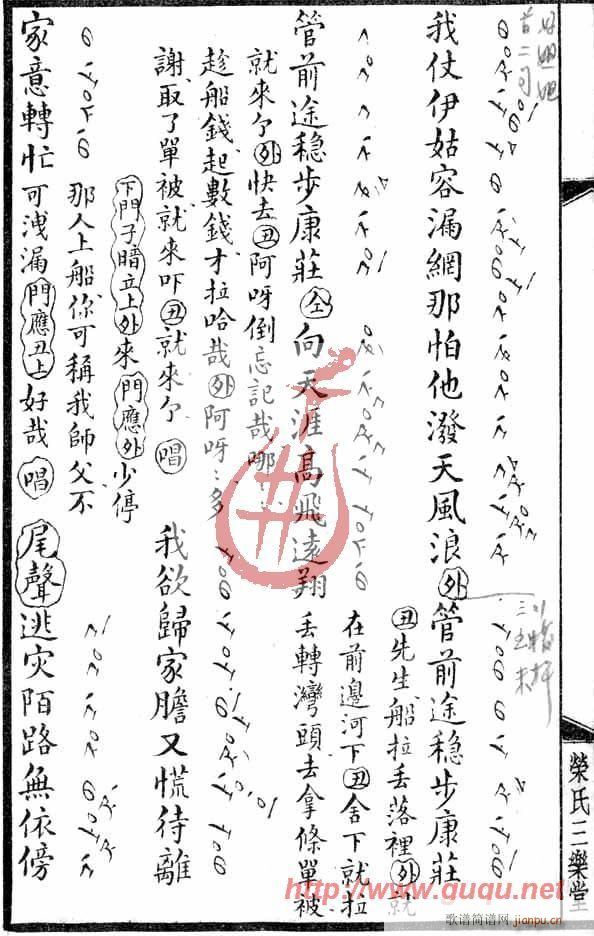 我仗伊姑容漏網那怕他潑天風浪外管前途穩步康莊
丑先生船拉丟落裡外就
在前邊河下丑舍下就拉
管前途穩步康莊仝向天涯高飛遠翔
丟轉灣頭去拿條單被
就來个外快去丑阿呀倒忘記哉哪
趁船錢起數錢才拉哈哉外阿呀:多
謝取了單被就來吓丑就來个唱
我欲歸家膽又慌待離
下門子暗立上外來門應外少停
那人上船你可稱我師父不
家意轉忙可洩漏門應丑上好哉唱
尾聲逃灾陌路無依傍
榮氏三樂堂
http://www.ququ.net
歌谱简谱网 jianpu.cn